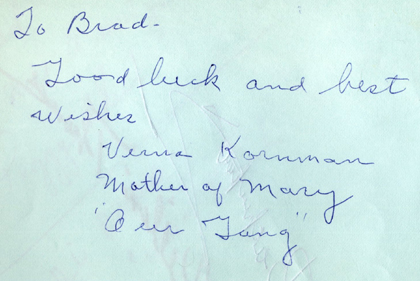 To Brad-
Good luck and best
wishes
Verna Kornman
Mother of Mary
"Our Gang"